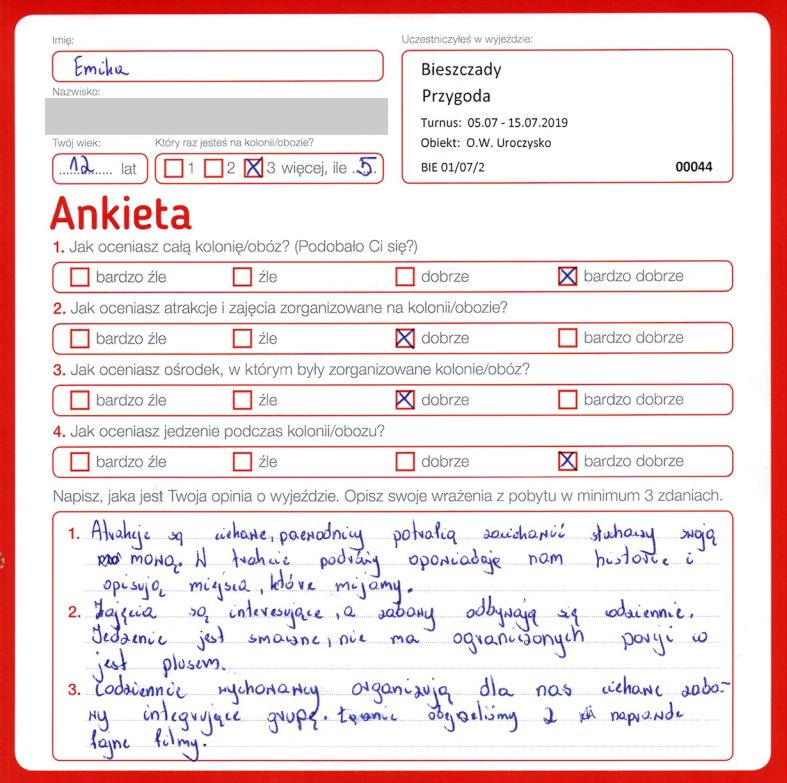 Imię:
Emika
Nazwisko:
Twój wiek:
12 lat
Który raz jesteś na kolonii/obozie?
1 2 3 więcej, ile 5
Uczestniczyłeś w wyjeździe:
Bieszczady
Przygoda
Turnus: 05.07 - 15.07.2019
Obiekt: O.W. Uroczysko
BIE 01/07/2 00044
Ankieta
1. Jak oceniasz całą kolonię/obóz? (Podobało Ci się?)
bardzo źle źle dobrze bardzo dobrze
2. Jak oceniasz atrakcje i zajęcia zorganizowane na kolonii/obozie?
bardzo źle źle dobrze bardzo dobrze
3. Jak oceniasz ośrodek, w którym były zorganizowane kolonie/obóz?
bardzo źle źle dobrze bardzo dobrze
4. Jak oceniasz jedzenie podczas kolonii/obozu?
bardzo źle źle dobrze bardzo dobrze
Napisz, jaka jest Twoja opinia o wyjeździe. Opisz swoje wrażenia z pobytu w minimum 3 zdaniach.
1. Atrakcje są ciekawe, przewodnicy potrafią zaciekawić słuchaczy swoją
mową. W trakcie podróży opowiadają nam historie i
opisują miejsca, które mijamy.
2. Zajęcia są interesujące, a zabawy odbywają się codziennie.
Jedzenie jest smaczne, nie ma ograniczonych porcji co
jest plusem.
3. Codziennie wychowawcy organizują dla nas ciekawe zaba-
wy integrujące grupę. Łącznie obejrzeliśmy 2 naprawde
fajne filmy.